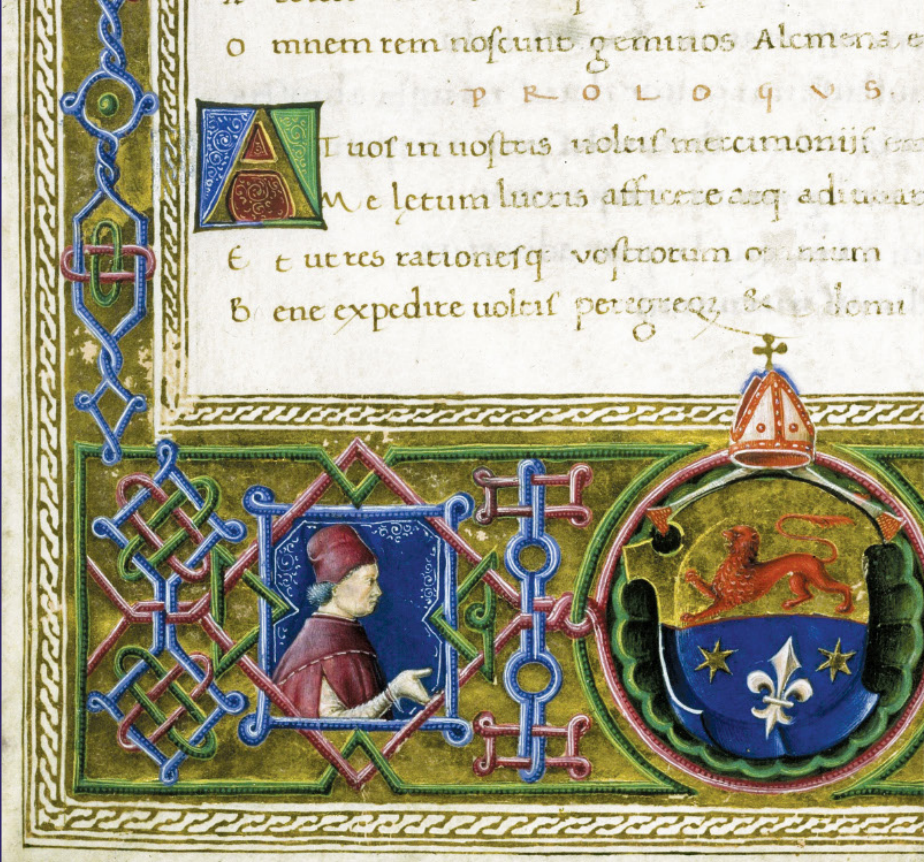 O mnem rem noscunt geminos Alcmena e
PROLOQVS
AT vos in uostris uoltis mercimonijs
Me lętum lucris afficere atq adiuua
E t ut res rationesq vostrorum omnium
B ene expedire uoltis peregreqz & domi